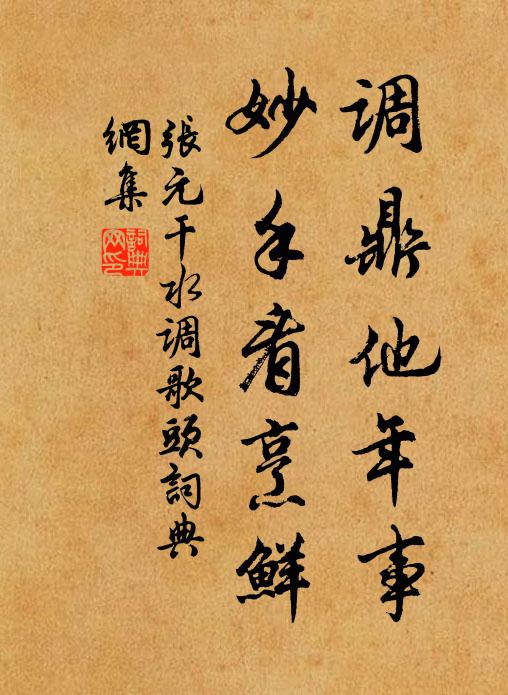 调鼎他年事
妙手看烹鲜
張元干水调歌頭詞典
網集
詞典
网印